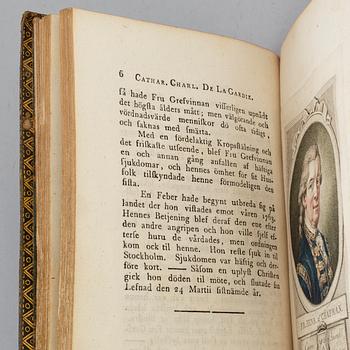 6 CATHAR. CHARL. DE LA GARDIE.
så hade Fru Grefvinnan visserligen upnådt
det högsta ålders mått; men välgörande och
vördnadsvärde menniskor dö ofta tidigt,
och saknas med smärta.
Med en fördelaktig Kropsställning och
det friskaste utseende, blef Fru Grefvinnan
en och annan gång anfallen af häftiga
sjukdomar, och hennes ömhet för sit Hus-
folk tilskyndade henne förmodeligen den
sista.
En Feber hade begynt utbreda sig på
landet der hon vistades emot våren 1763.
Hennes Betjening blef deraf den ene efter
den andre angripen och hon ville sjelf ef-
terse huru de vårdades, men ordningen
kom ock til henne. Hon reste sjuk til
Stockholm. Sjukdomen var häftig och der-
före kort. — Såsom en uplyst Christen
gick hon döden til möte, och slutade sin
Lefnad den 24 Martii sistnämde år.
CHAPMAN.